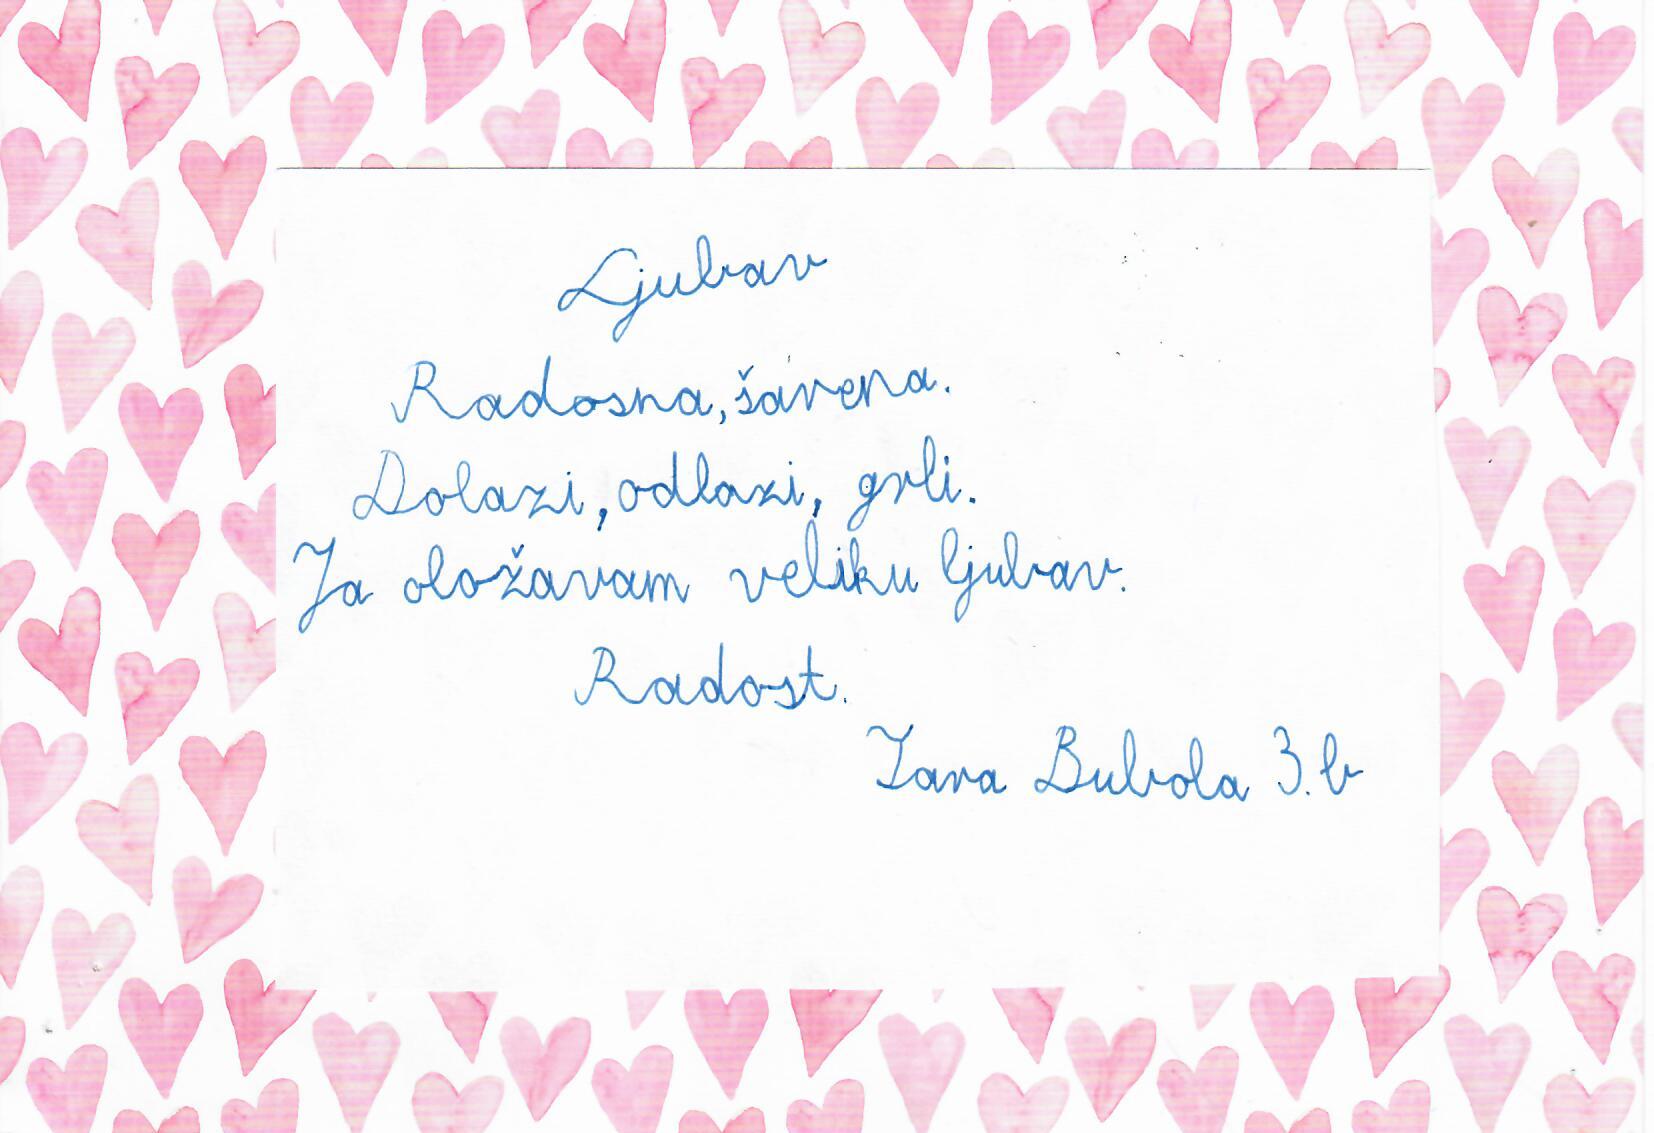 Ljubav
Radosna, šarena.
Dolazi, odlazi, grli.
Ja obožavam veliku ljubav.
Radost.
Tara Bubola 3.b